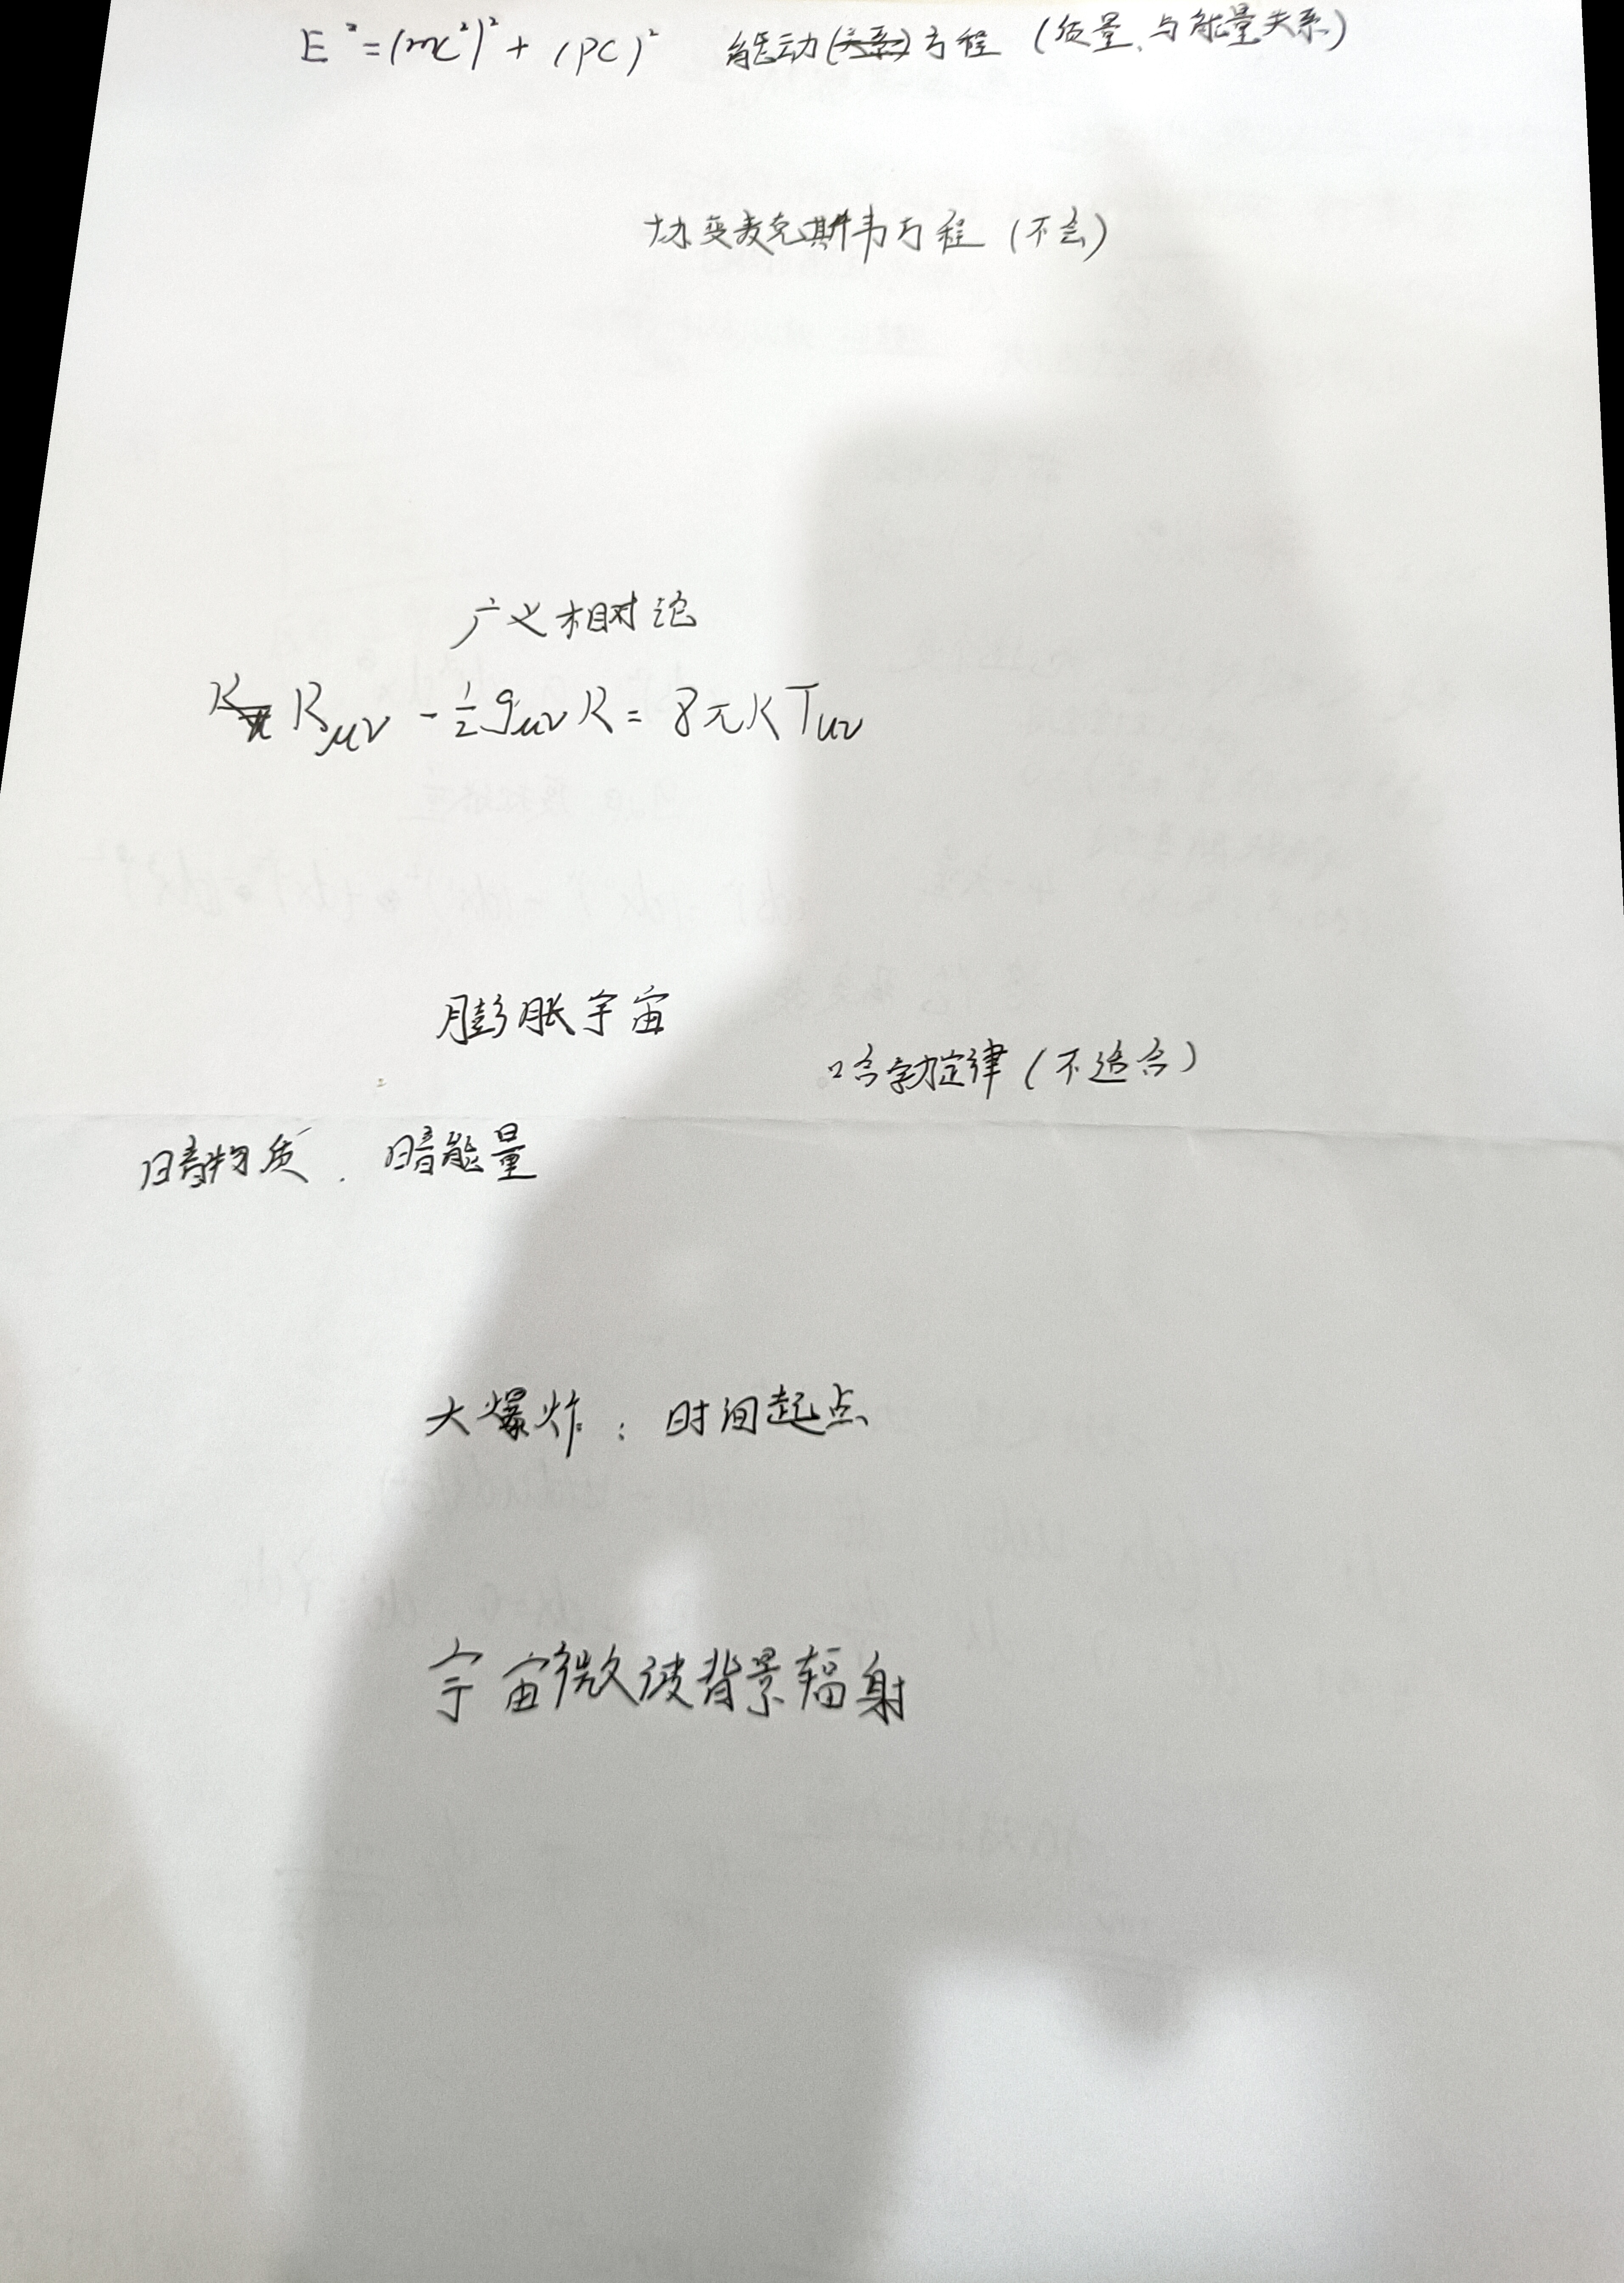 E² = (mc²)² + (pc)² 能动(关系)方程 (质量、与能量关系)
协变麦克斯韦方程 (不会)
广义相对论
R_μν - 1/2 g_μν R = 8πK T_μν
膨胀宇宙
哈勃定律 (不适合)
暗物质. 暗能量
大爆炸: 时间起点
宇宙微波背景辐射